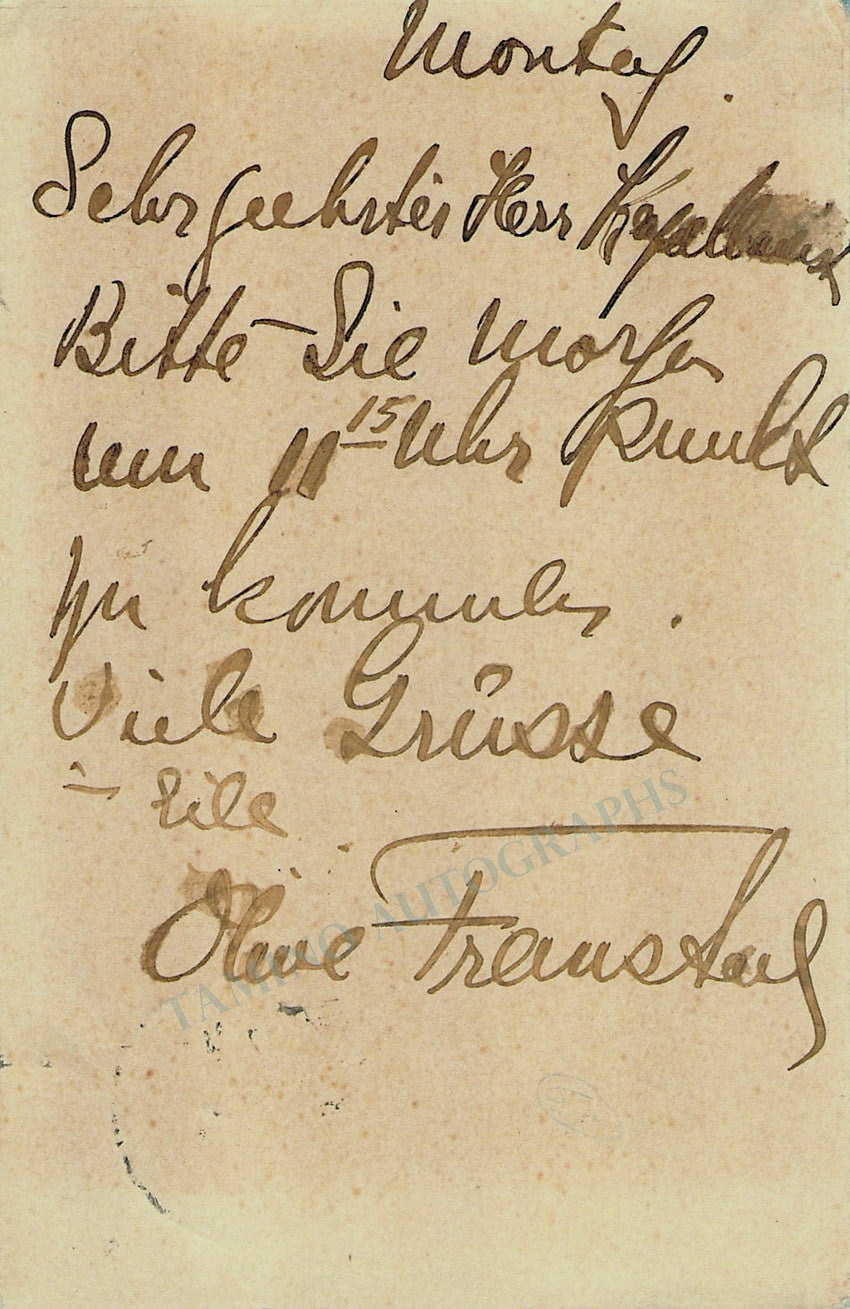 Montag.
Sehr geehrter Herr Kapellmeist
Bitte Sie morgen
um 11 15 Uhr Punkt
zu kommen.
Viele Grüsse
- Eile
Olive Fremstad
TAMINO AUTOGRAPHS